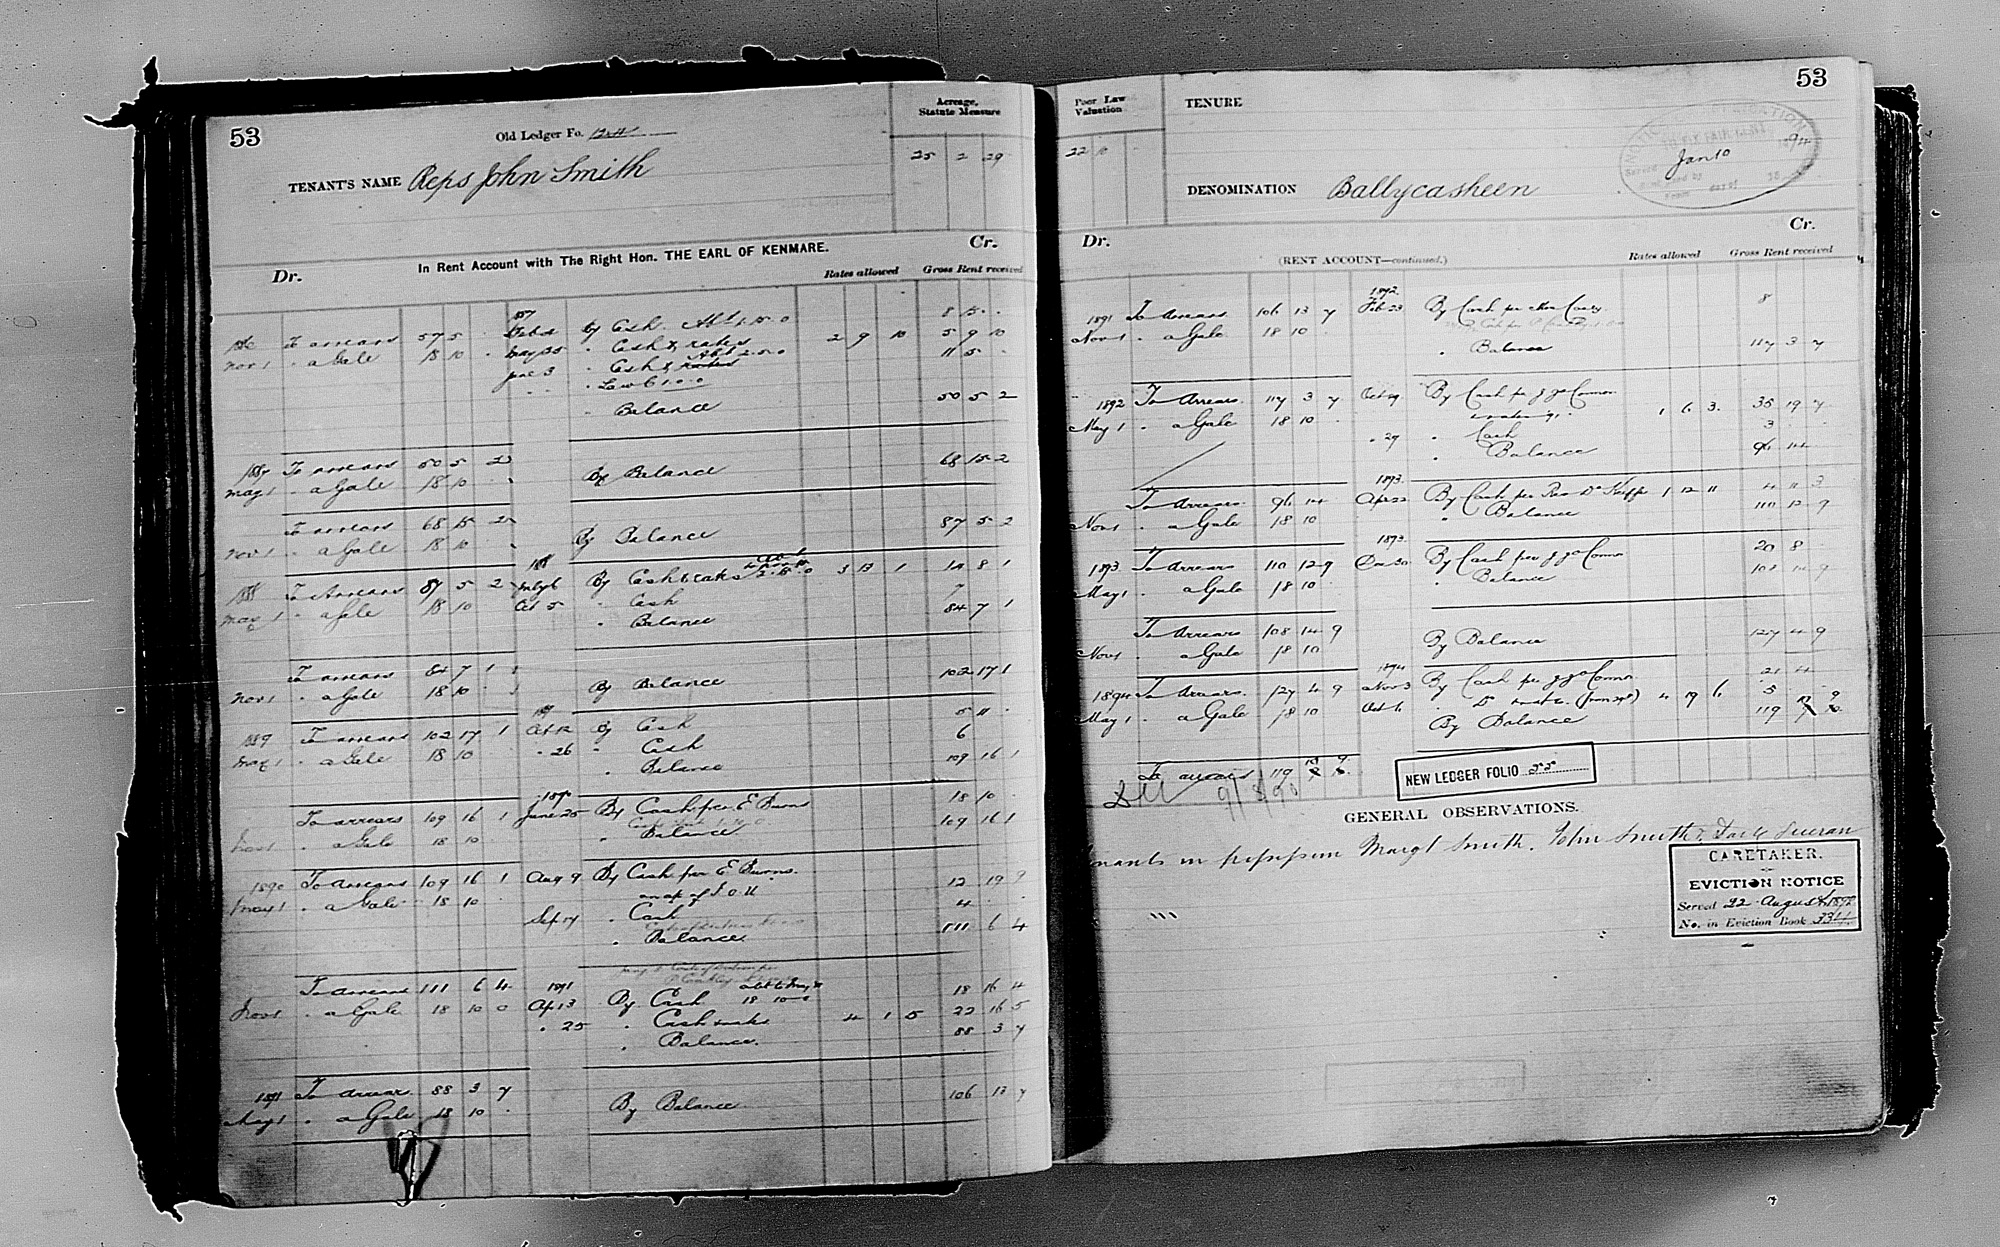 53
Old Ledger Fo. 124
Acreage, Statute Measure
25 2 29
TENANT'S NAME Reps John Smith
In Rent Account with The Right Hon. THE EARL OF KENMARE.
Dr. Cr.
Rates allowed Gross Rent received
To arrears 57 5 Feb By Cash 8 15
Nov 1 " a Gale 18 10 May " Cash & rates 2 9 10 5 9 10
June 3 " Cash & rates 11 5
" Law C 1.0.0
" Balance 50 5 2
1887 To arrears 50 5 2
May 1 " a Gale 18 10 By Balance 68 15 2
To arrears 68 15 2
Nov 1 " a Gale 18 10 By Balance 87 5 2
1888 To Arrears 87 5 2 July 6 By Cash & rates 3 13 1 14 8 1
May 1 " a Gale 18 10 Oct 5 " Cash 7
" Balance 84 7 1
To arrears 84 7 1
Nov 1 " a Gale 18 10 By Balance 102 17 1
1889 To arrears 102 17 1 Oct 12 By Cash 5 11
May 1 " a Gale 18 10 " 26 " Cash 6
" Balance 109 16 1
1890
To arrears 109 16 1 June 25 By Cash per E Burns 18 10
Nov 1 " a Gale 18 10 " Balance 109 16 1
1890 To Arrears 109 16 1 Aug 9 By Cash per E Burns
May 1 " a Gale 18 10 on a/c of I.O.U 12 19 9
Sep 17 " Cash 4
" Balance 111 6 4
To arrears 111 6 4 1891
Nov 1 " a Gale 18 10 0 Apl 3 By Cash 18 10 0 18 16 4
" 25 " Cash & rates 4 1 5 22 16 5
" Balance 88 3 7
1891 To arrears 88 3 7
May 1 " a Gale 18 10 By Balance 106 13 7
53
Poor Law Valuation
22 10
TENURE
Jan 10
DENOMINATION Ballycasheen
Dr. Cr.
(RENT ACCOUNT—continued.)
Rates allowed Gross Rent received
1892
1891 To Arrears 106 13 7 Feb 23 By Cash per 8
Nov 1 " a Gale 18 10
" Balance 117 3 7
1892 To Arrears 117 3 7 Oct 29 By Cash per J J O'Connor
May 1 " a Gale 18 10 1 6 3 35 19 7
" 29 " Cash 3
" Balance 96 14
1893
To Arrears 96 14 Apr 22 By Cash per Rev D O'Keeffe 1 12 11 4 11 3
Nov 1 " a Gale 18 10 " Balance 110 12 9
1893
1893 To Arrears 110 12 9 Dec 30 By Cash per J J O'Connor 20 8
May 1 a Gale 18 10 " Balance 108 14 9
To Arrears 108 14 9
Nov 1 " a Gale 18 10 By Balance 127 4 9
1894
1894 To Arrears 127 4 9 Nov 3 By Cash per J J O'Connor 21 4
May 1 " a Gale 18 10 Oct 6 " Do 4 19 6 5
By Balance 119
To arrears 119
NEW LEDGER FOLIO 55
GENERAL OBSERVATIONS.
in possession Margt Smith. John Smith
CARETAKER.
EVICTION NOTICE
Served 22 August 1892
No. in Eviction Book 3311